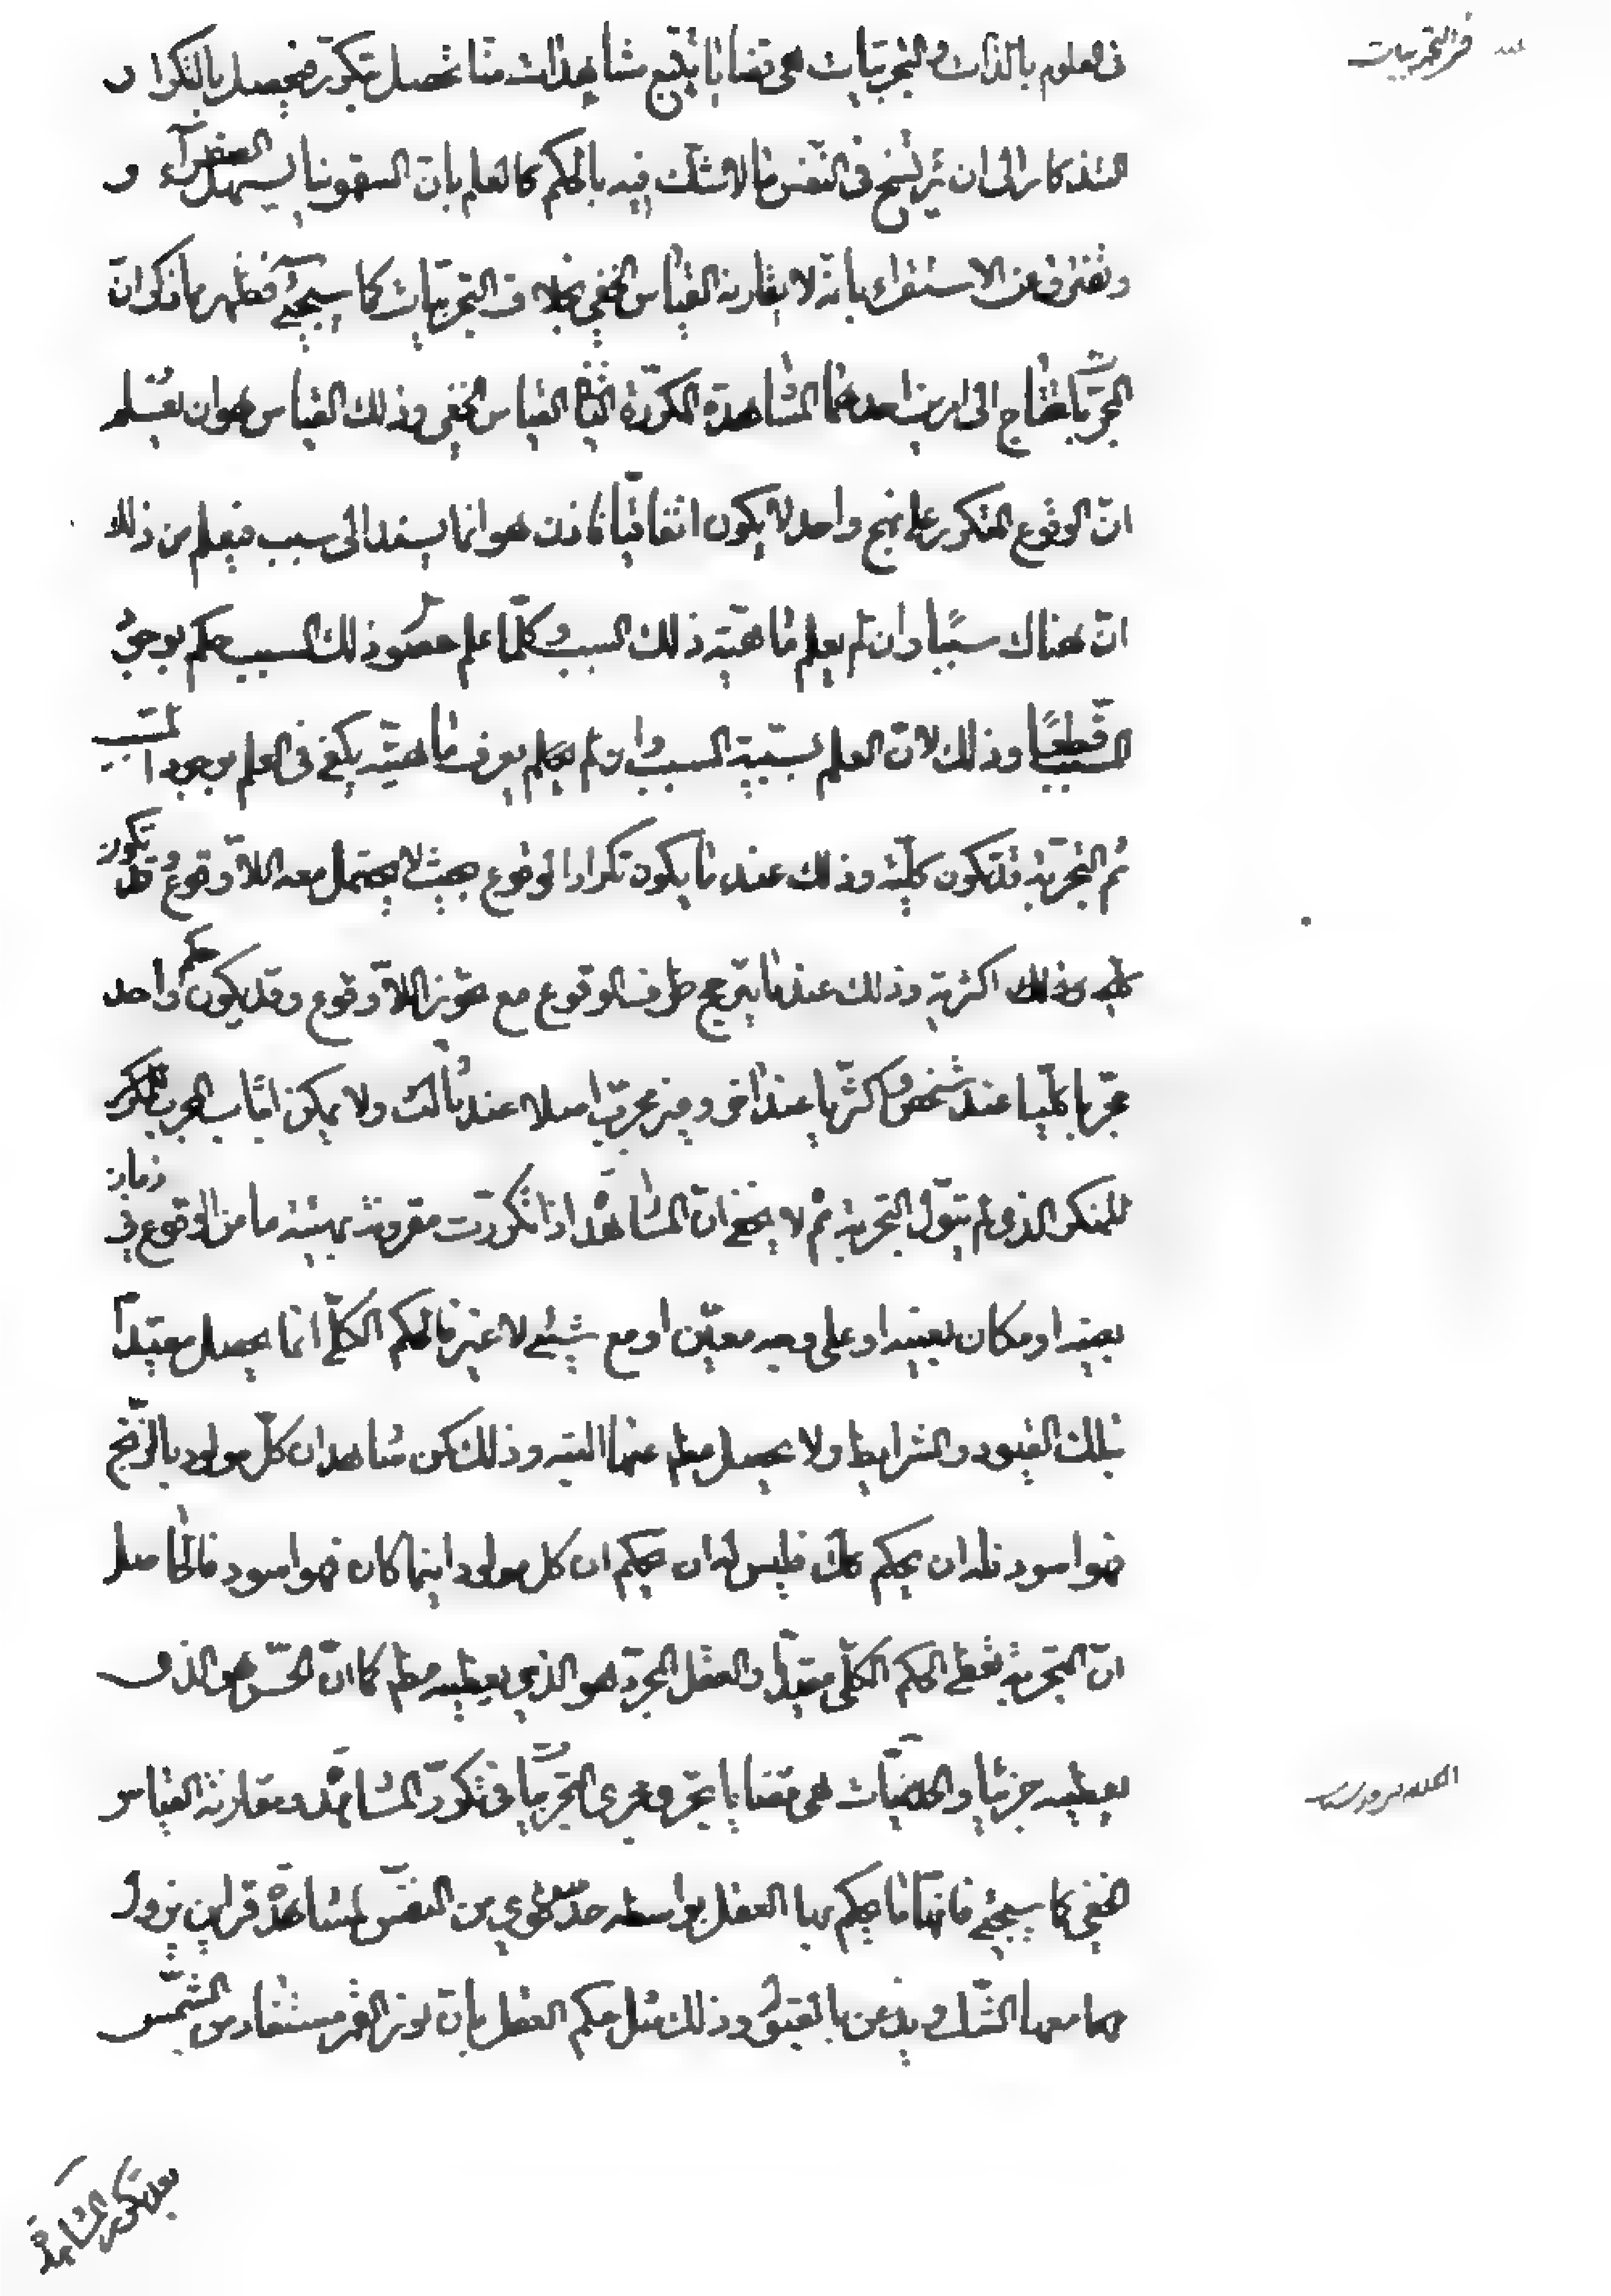 فى العلوم بالذات والتجربيات هى قضايا تتبع مشاهدات منا تحصل بتكرر فيحصل بالتكرار و
التذكار الى ان يترسخ فى النفس ما لا شك فيه بالحكم كالعلم بان السقمونيا يسهل الصفرآء و
وتفترق عن الاستقراء بانه لا يقارنه القياس الخفي بخلاف التجربيات كما سيجيئ فظهر ما ذكر ان
المجربات يحتاج الى امرين احدهما المشاهدة المكررة الثانى القياس الخفى وذلك القياس هو ان يعلم
ان الوقوع المتكرر على نهج واحد لا يكون اتفاقيا فاذن هو انما يستند الى سبب فيعلم من ذلك
ان هناك سببا وان لم يعلم ماهية ذلك السبب وكلما علم حصول ذلك السبب حكم بوجود
المسبب قطعًا وذلك لان العلم بسببية السبب وان لم يعرف ماهيته يكفى فى العلم بوجود المسبب
ثم التجربة قد تكون كلية وذلك عند ما يكون تكرار الوقوع بحيث لا يحتمل معه اللا وقوع وقد تكون
اكثرية وذلك عند ما يترجح طرف الوقوع مع تجويز اللا وقوع وقد يكون حكم واحد
مجربا كليا عند شخص واكثريا عند اخر وغير مجرب اصلا عند ثالث ولا يمكن اثبات المجرب المذكور
للمنكر الذى لم يتول التجربة ثم لا يخفى ان المشاهدة اذا تكررت مقرونة بهيئة ما من الوقوع فى زمان
بعينه او مكان بعينه او على وجه معين او مع شيئ لا غير فالحكم الكلى انما يحصل مقيدآ
بتلك القيود والشرايط ولا يحصل مطلقا عنها البتة وذلك كمن شاهد ان كل مولود بالزنج
فهو اسود فله ان يحكم كذلك فليس له ان يحكم ان كل مولود اينما كان فهو اسود فالحاصل
ان التجربة تعطى الحكم الكلى مقيدا والعقل المجرد هو الذي يعطيه مطلقا كما ان الحس هو الذى
يعطيه جزئيا والحدسيات هى قضايا تجرى مجرى التجربيات فى تكرر المشاهدة ومقارنة القياس
الخفى كما سيجيئ فانها ما يحكم بها العقل بواسطة حدس قوي من النفس لمشاهدة قراين يزول
معها الشك ويذعن باليقين وذلك مثل حكم العقل بان نور القمر مستفاد من الشمس
بعد تكرر المشاهدة